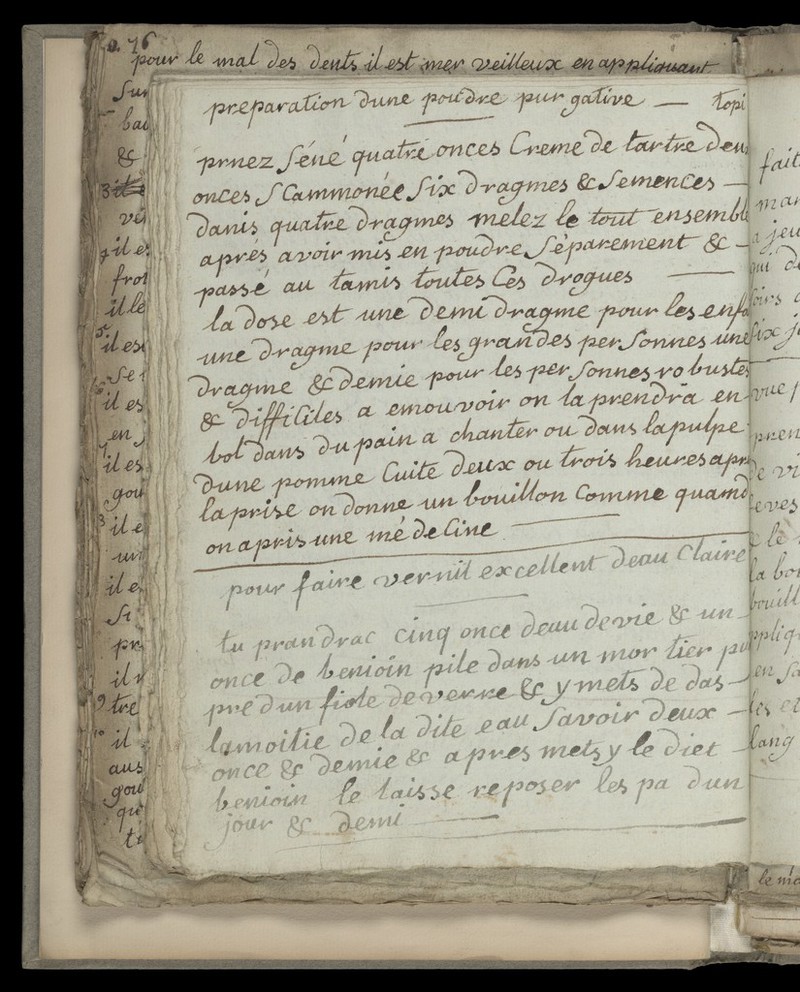 p. 76
pour le mal des dents il est mer veilleux en appliquant
preparation dune poudre purgative — topi
prnez séné quatre onces Creme de tartre deux
onces sCammonée six dragmes & semences —
danis quatre dragmes melez le tout ensemble
aprés avoir mis en poudre séparement & —
passé au tamis toutes Ces drogues —
la dose est une demi dragme pour les enfa
une dragme pour les grandes personnes une
dragme & demie pour les personnes robustes
& difficiles a emouvoir on la prendra en
bol dans du pain a chanter ou dans lapulpe
dune pomme Cuite deux ou trois heures apr
laprise on donne un bouillon Comme quamd
on apris une mé deCine
pour faire vernil excellent deau Claire
tu prandrac cinq once deau devie & un
once de benioin pile dans un mor tier pu
pre dun fiole de verre & y mets de das —
lamoitie de la dite eau savoir deux —
once & demie & apres mets y le diet —
benioin le laisse reposer les pa dun
jour & demi
sur
bai
&
il e
frot
il le
il est
il es
en
il es
gou
il e
un
il e
si
pr
il
tre
il
aus
gou
que
fait
mar
a jeu
qui d
six j
vue
pren
de vi
leves
le
la bo
bouill
appliq
en sa
les et
sang
le ma